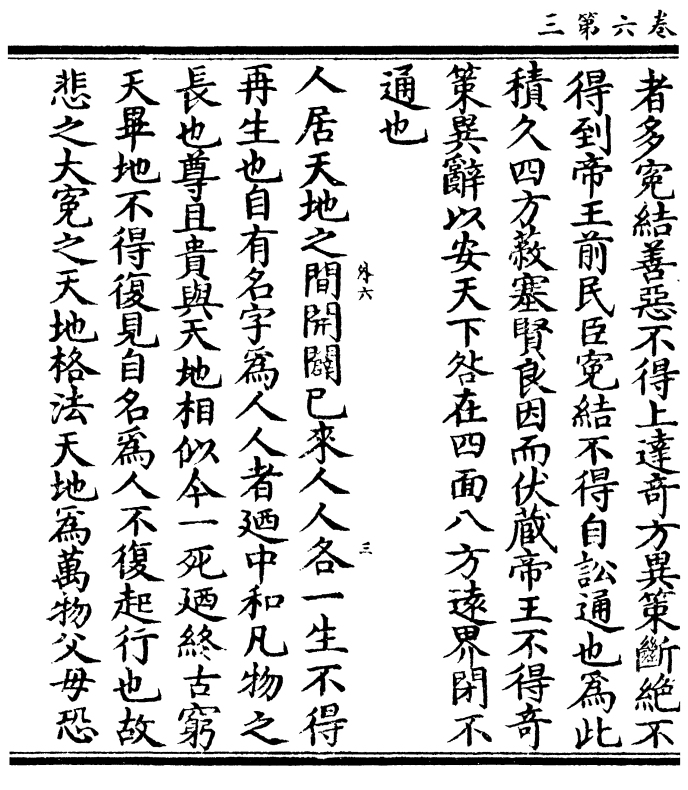 卷六第三
者多寃結善惡不得上達竒方異策斷絶不
得到帝王前民臣寃結不得自訟通也為此
積久四方蔽塞賢良因而伏藏帝王不得竒
策異辭以安天下咎在四面八方逺界閉不
通也
人居天地之間開闢已來人人各一生不得
外六
三
再生也自有名字為人人者廼中和凡物之
長也尊且貴與天地相似今一死廼終古窮
天畢地不得復見自名為人不復起行也故
悲之大寃之天地格法天地為萬物父母恐